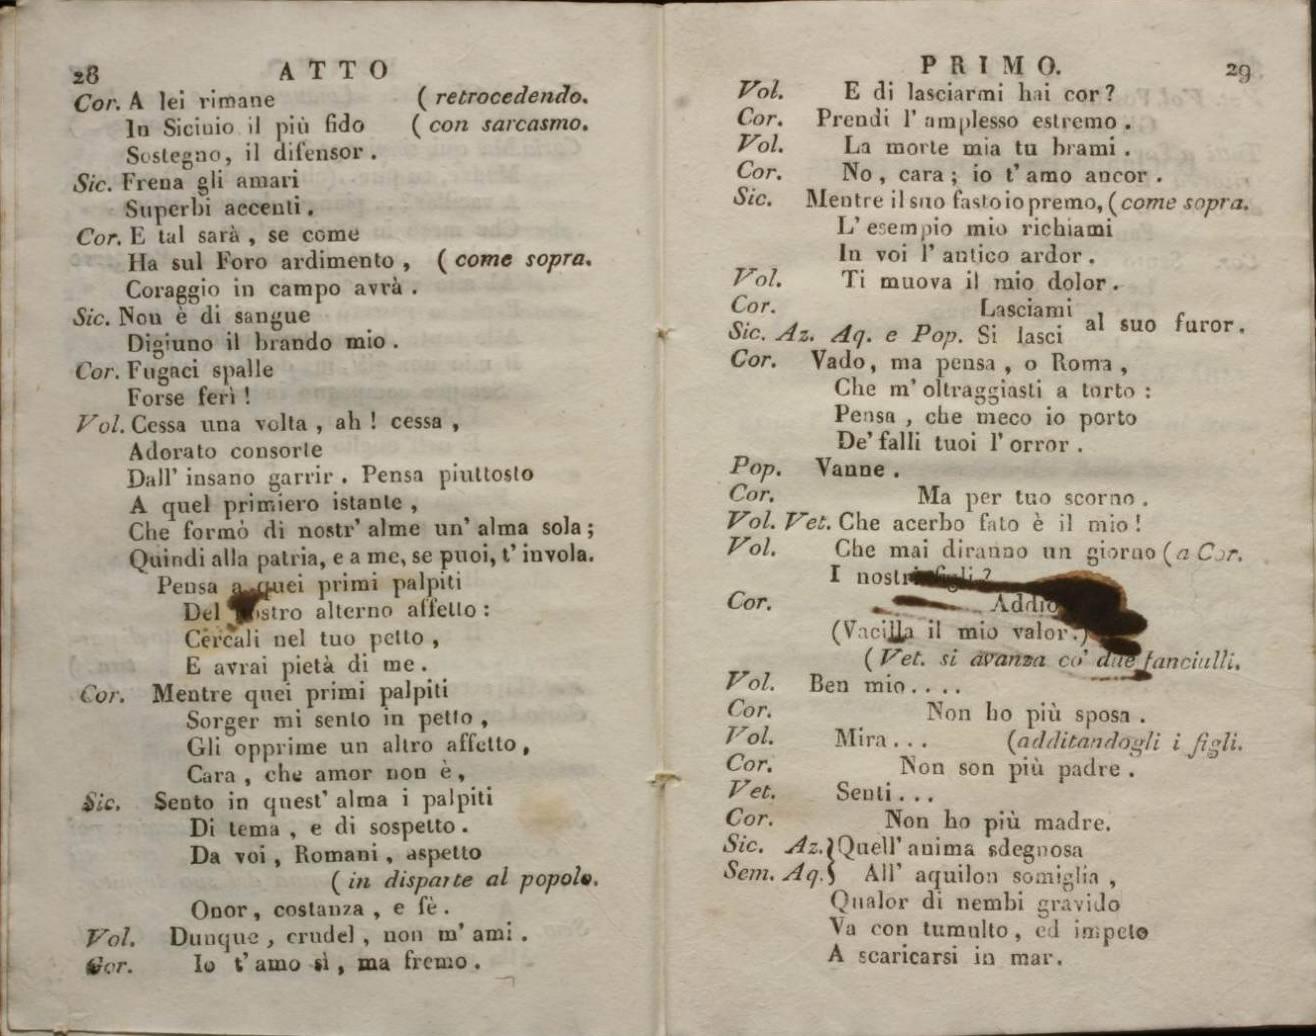 28 ATTO
Cor. A lei rimane ( retrocedendo.
In Sicinio il più fido ( con sarcasmo.
Sostegno, il difensor.
Sic. Frena gli amari
Superbi accenti.
Cor. E tal sarà, se come
Ha sul Foro ardimento, ( come sopra.
Coraggio in campo avrà.
Sic. Non è di sangue
Digiuno il brando mio.
Cor. Fugaci spalle
Forse ferì!
Vol. Cessa una volta, ah! cessa,
Adorato consorte
Dall' insano garrir. Pensa piuttosto
A quel primiero istante,
Che formò di nostr' alme un' alma sola;
Quindi alla patria, e a me, se puoi, t' invola.
Pensa a quei primi palpiti
Del nostro alterno affetto:
Cercali nel tuo petto,
E avrai pietà di me.
Cor. Mentre quei primi palpiti
Sorger mi sento in petto,
Gli opprime un altro affetto,
Cara, che amor non è,
Sic. Sento in quest' alma i palpiti
Di tema, e di sospetto.
Da voi, Romani, aspetto
( in disparte al popolo.
Onor, costanza, e fè.
Vol. Dunque, crudel, non m' ami.
Cor. Io t' amo sì, ma fremo.
PRIMO. 29
Vol. E di lasciarmi hai cor?
Cor. Prendi l' amplesso estremo.
Vol. La morte mia tu brami.
Cor. No, cara; io t' amo ancor.
Sic. Mentre il suo fasto io premo, ( come sopra.
L' esempio mio richiami
In voi l' antico ardor.
Vol. Ti muova il mio dolor.
Cor. Lasciami
al suo furor.
Sic. Az. Aq. e Pop. Si lasci
Cor. Vado, ma pensa, o Roma,
Che m' oltraggiasti a torto:
Pensa, che meco io porto
De' falli tuoi l' orror.
Pop. Vanne.
Cor. Ma per tuo scorno.
Vol. Vet. Che acerbo fato è il mio!
Vol. Che mai diranno un giorno ( a Cor.
I nostri figli?
Cor. Addio
(Vacilla il mio valor.)
( Vet. si avanza co' due fanciulli.
Vol. Ben mio....
Cor. Non ho più sposa.
Vol. Mira... (additandogli i figli.
Cor. Non son più padre.
Vet. Senti...
Cor. Non ho più madre.
Sic. Az.} Quell' anima sdegnosa
Sem. Aq.} All' aquilon somiglia,
Qualor di nembi gravido
Va con tumulto, ed impeto
A scaricarsi in mar.